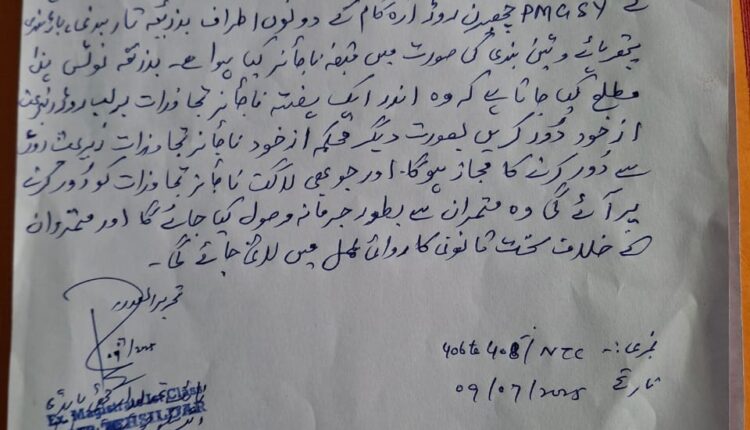 کے PMGSY چھچھدرن روڈ ارہ گام کے دونوں اطراف بذریعہ تار بندی، باڑبندی
پتھر ہائے و ٹین بندی کی صورت میں قبضہ ناجائز کیا ہوا ہے۔ بذریعہ نوٹس ہذا
مطلع کیا جاتا ہے کہ وہ اندر ایک ہفتہ ناجائز تجاوزات برلب روڈ زیربحث
از خود دُور کریں بصورت دیگر محکمہ از خود ناجائز تجاوزات زیربحث روڈ
سے دُور کرنے کا مجاز ہوگا۔ اور جو بھی لاگت ناجائز تجاوزات کو دُور کرنے
پر آئے گی وہ متمران سے بطور جرمانہ وصول کیا جائے گا اور متمردان
کے خلاف سخت قانونی کاروائی عمل میں لائی جائے گی۔
تحریر الصدر
09/7/2025
نمبری :- 406 to 408/NTC
تاریخ 09/07/2025
Ex. Magistrate Ist Class
TEHSILDAR